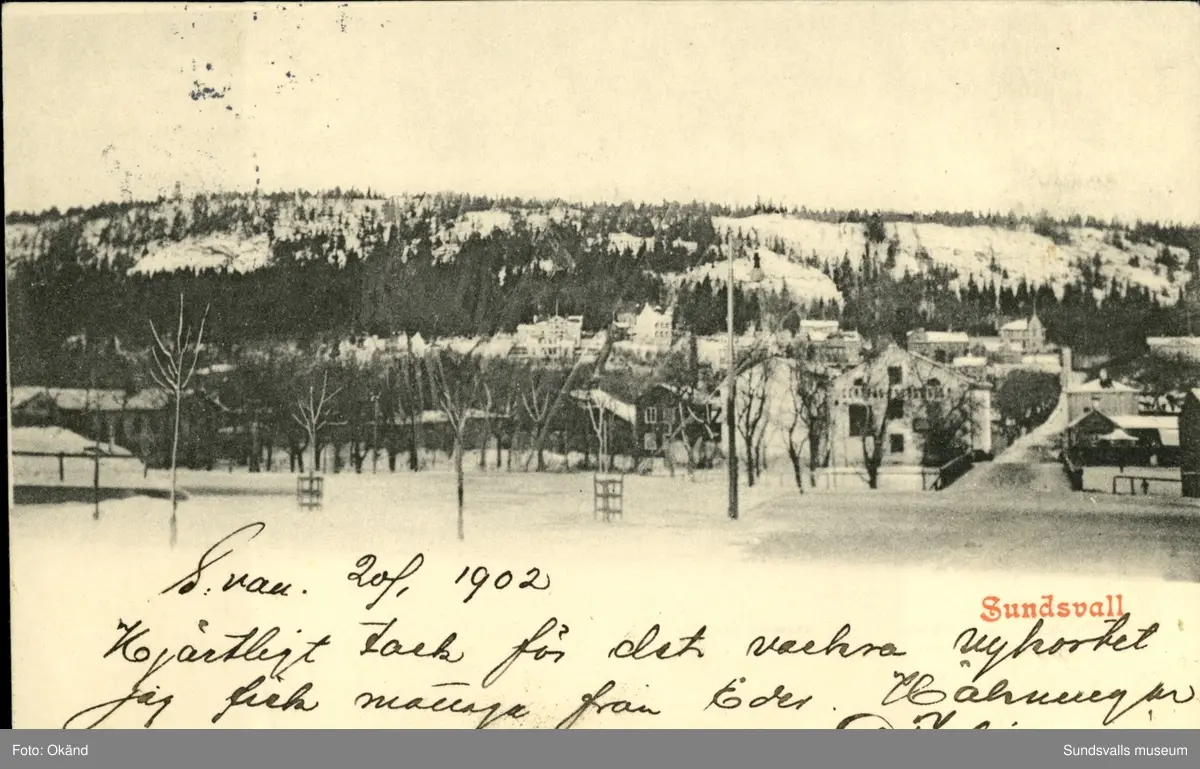 S.vall. 20/1 1902
Sundsvall
Hjärtligt tack för det vackra vykortet
jag fick mottaga från Eder. Hälsningar
Foto: Okänd
Sundsvalls museum